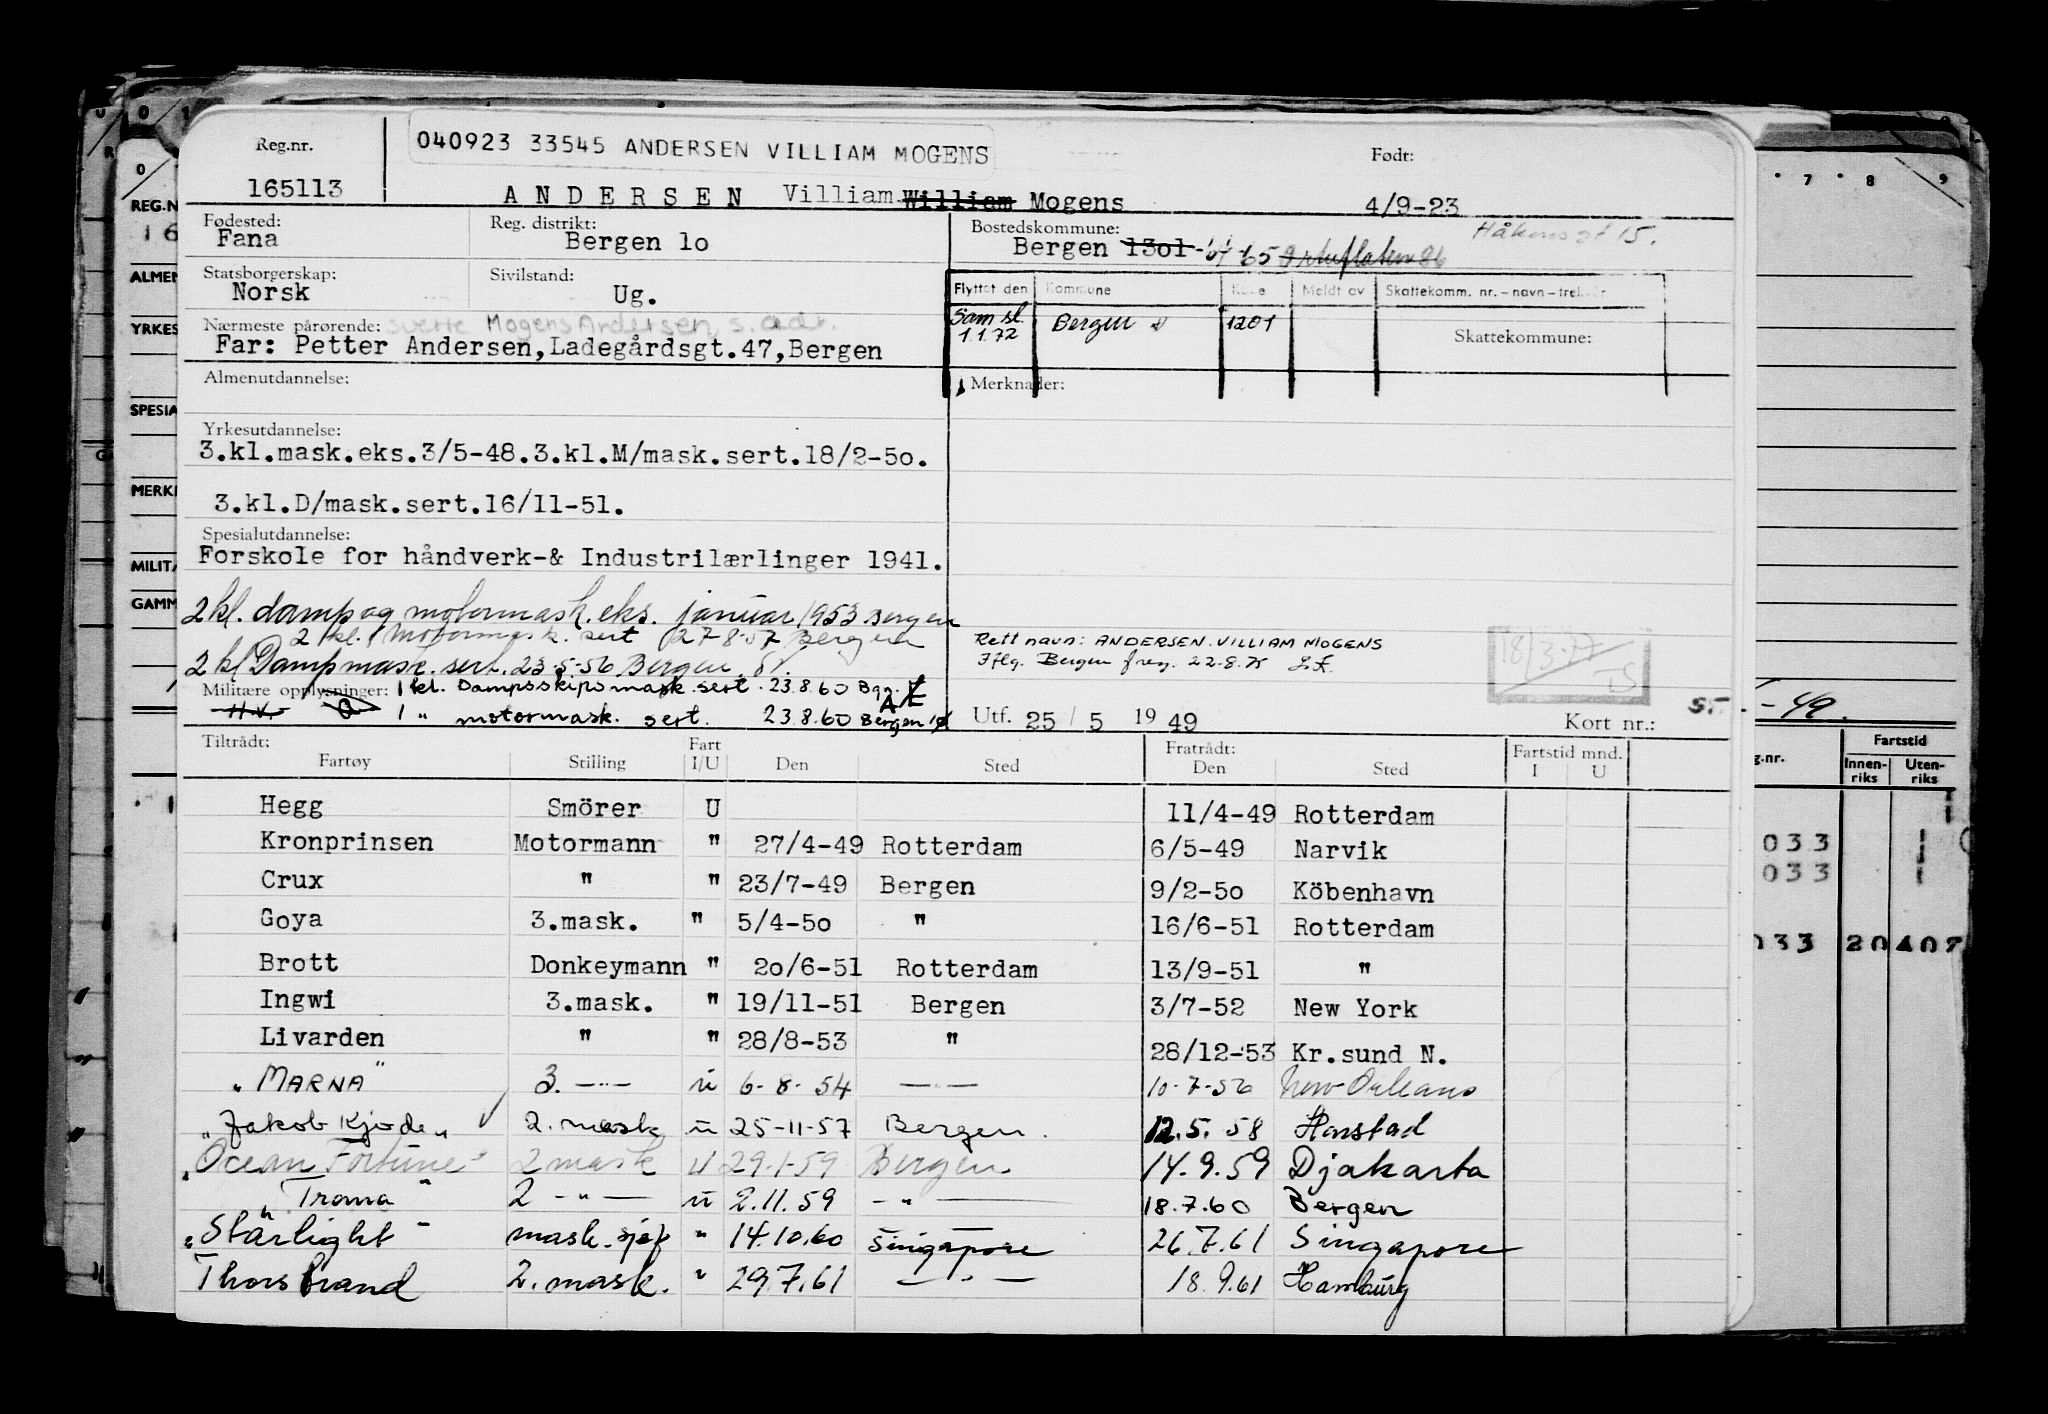 Reg.nr. 040923 33545 ANDERSEN VILLIAM MOGENS Født:
165113 ANDERSEN Villiam William Mogens 4/9-23
Fødested: Reg. distrikt: Bostedskommune: Håkonsgt 15.
Fana Bergen 1o Bergen 13o1
Statsborgerskap: Sivilstand:
Norsk Ug.
Flyttet den Kommune Kode Meldt av Skattekomm. nr. – navn – trekk
Sam sl. 1.1.72 Bergen 1201
Nærmeste pårørende: Sverre Mogens Andersen, s. adr.
Far: Petter Andersen, Ladegårdsgt.47, Bergen Skattekommune:
Almenutdannelse: Merknader:
Yrkesutdannelse:
3.kl.mask.eks.3/5-48.3.kl.M/mask.sert.18/2-5o.
3.kl.D/mask.sert.16/11-51.
Spesialutdannelse:
Forskole for håndverk-& Industrilærlinger 1941.
2 kl. damp og motormask. eks. januar 1953 Bergen
2 kl. Motormask. sert 27.8.57 Bergen
2 kl Dampmask. sert. 23.5.56 Bergen
Rett navn: ANDERSEN. VILLIAM MOGENS
Iflg. Bergen freg. 22.8.75
18/3-77
Militære opplysninger: 1 kl. Dampsskipsmask. sert. 23.8.60 Bgn.
H.V. 1 " motormask. sert. 23.8.60 Bergen
Utf. 25 / 5 19 49 Kort nr.:
Tiltrådt: Fart Fratrådt: Fartstid mnd.
Fartøy Stilling I/U Den Sted Den Sted I U
Hegg Smörer U 11/4-49 Rotterdam
Kronprinsen Motormann " 27/4-49 Rotterdam 6/5-49 Narvik
Crux " " 23/7-49 Bergen 9/2-5o Köbenhavn
Goya 3.mask. " 5/4-5o " 16/6-51 Rotterdam
Brott Donkeymann " 2o/6-51 Rotterdam 13/9-51 "
Ingwi 3.mask. " 19/11-51 Bergen 3/7-52 New York
Livarden " " 28/8-53 " 28/12-53 Kr.sund N.
"MARNA" 3. —"— u 6-8-54 —"— 10-7-56 New Orleans
"Jakob Kjøde" 2. mask u 25-11-57 Bergen. 12.5.58 Harstad
"Ocean Fortune" 2 mask U 29-1-59 Bergen 14.9.59 Djakarta
"Troma" 2 —"— u 2.11.59 —"— 18.7.60 Bergen
"Starlight" mask.sjef " 14.10.60 Singapore 26.7.61 Singapore
Thorsbrand 2. mask. " 29.7.61 —"— 18.9.61 Hamburg
REG.N
ALMEN
YRKES
SPESIA
MERK
MILITÆ
GAMM
7 8 9
-49.
g.nr. Fartstid
Innen-riks Uten-riks
033
033
033 20 407